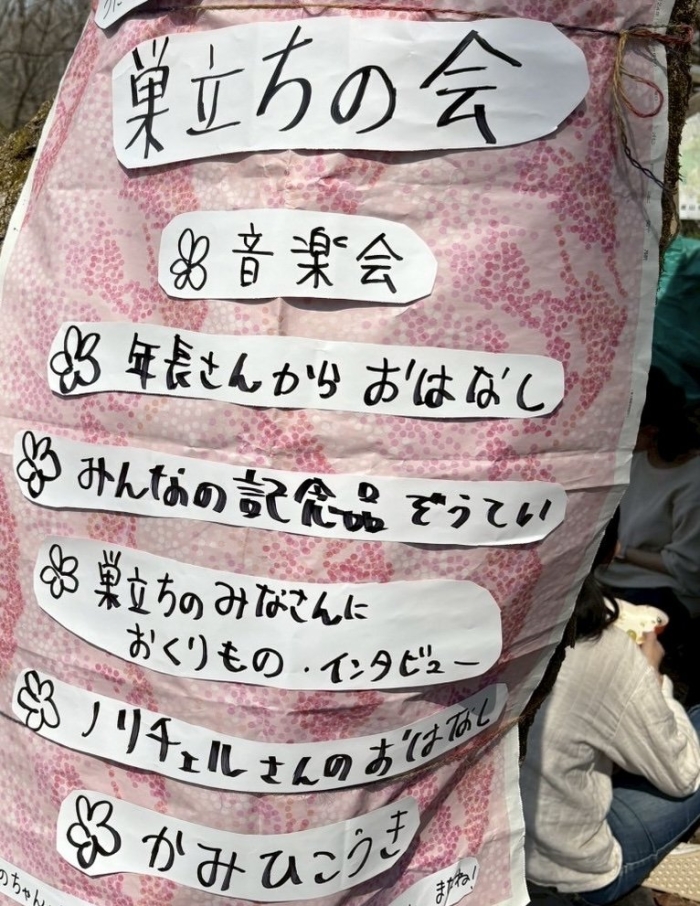 巣立ちの会
音楽会
年長さんから おはなし
みんなの記念品 ぞうてい
巣立ちのみなさんに
おくりもの・インタビュー
ノリチェルさんのおはなし
かみひこうき
のちゃん
またね!